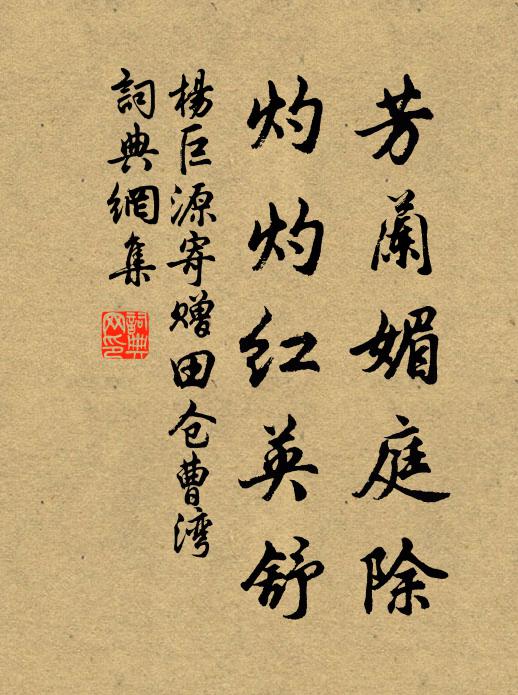 芳蘭媚庭除
灼灼红英舒
楊巨源寄贈田仓曹湾
詞典網集
詞典网印